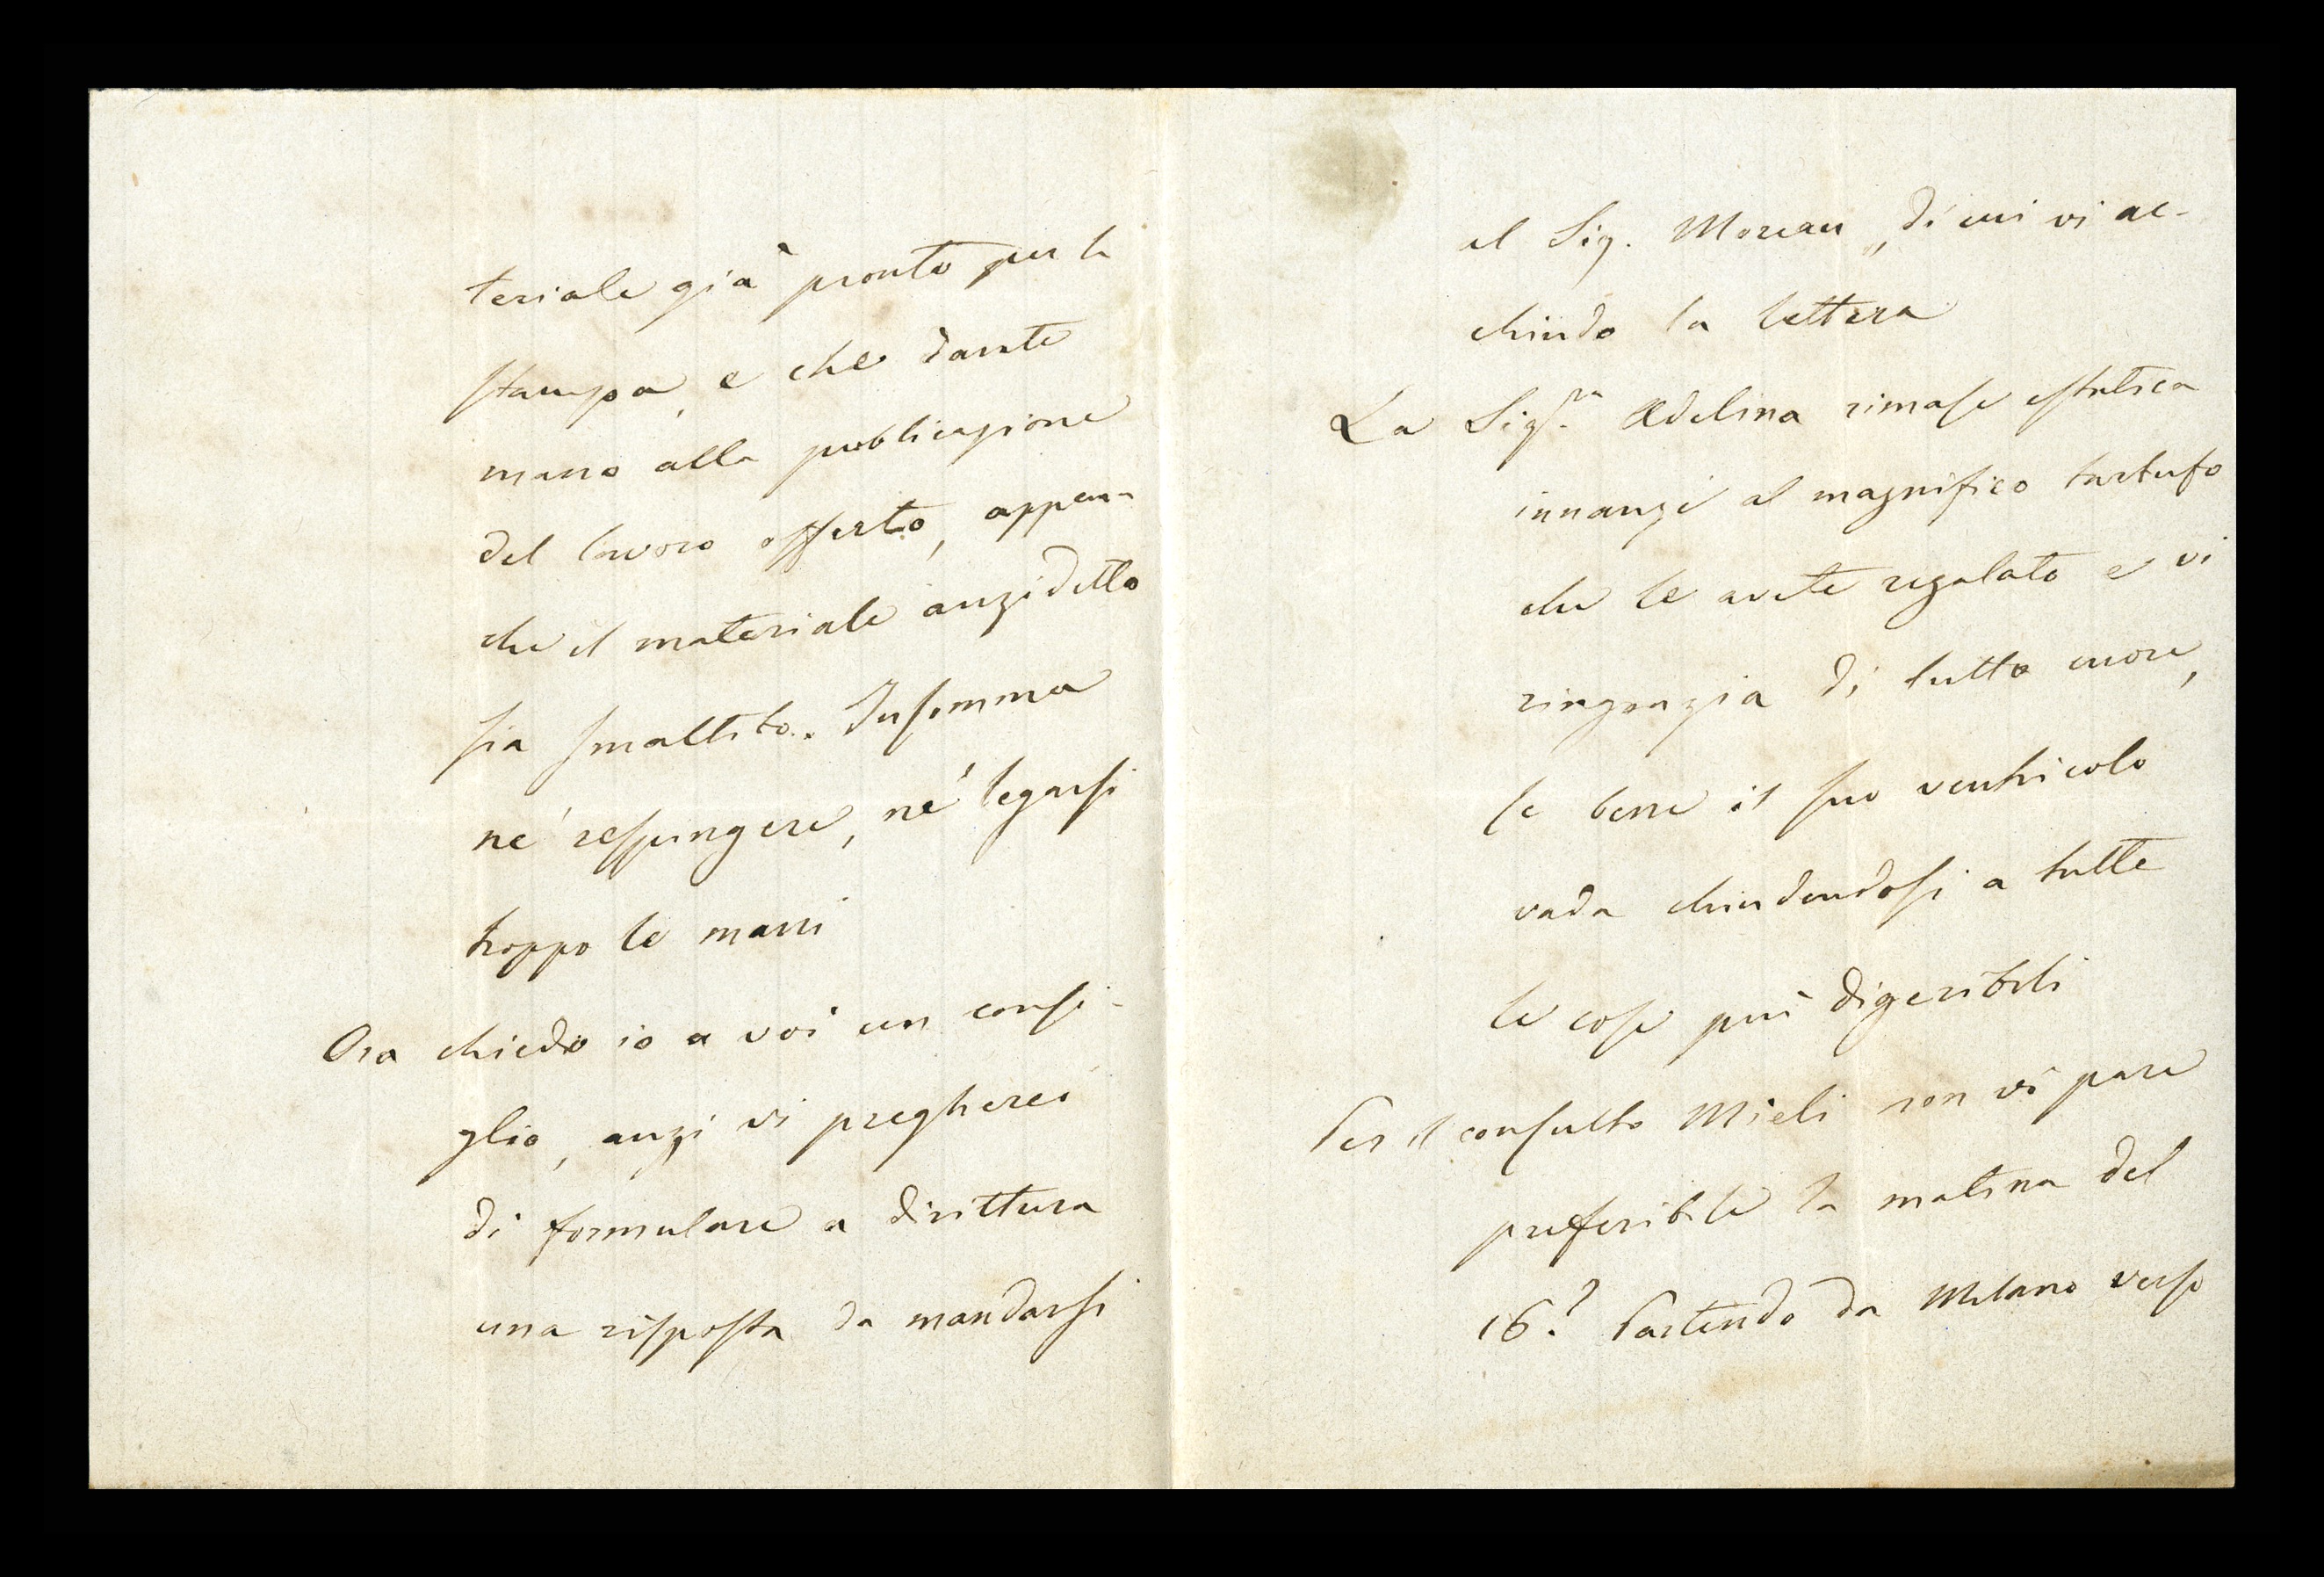 teriale già pronto per la
stampa, e che darete
mano alla pubblicazione
del lavoro offerto, appena
che il materiale anzidetto
sia smaltito. Insomma
né respingere, né legarsi
troppo le mani
Ora chiedo io a voi un consi-
glio, anzi vi pregherei
di formulare a dirittura
una risposta da mandarsi
al Sig. Moreau, di cui vi ac-
chiudo la lettera
La Sigra. Adelina rimase estatica
innanzi al magnifico tartufo
che le avete regalato e vi
ringrazia di tutto cuore,
se bene il suo ventricolo
vada chiudendosi a tutte
le cose più digeribili
Per il consulto Mieli non vi pare
preferibile la matina del
16? Partendo da Milano verso